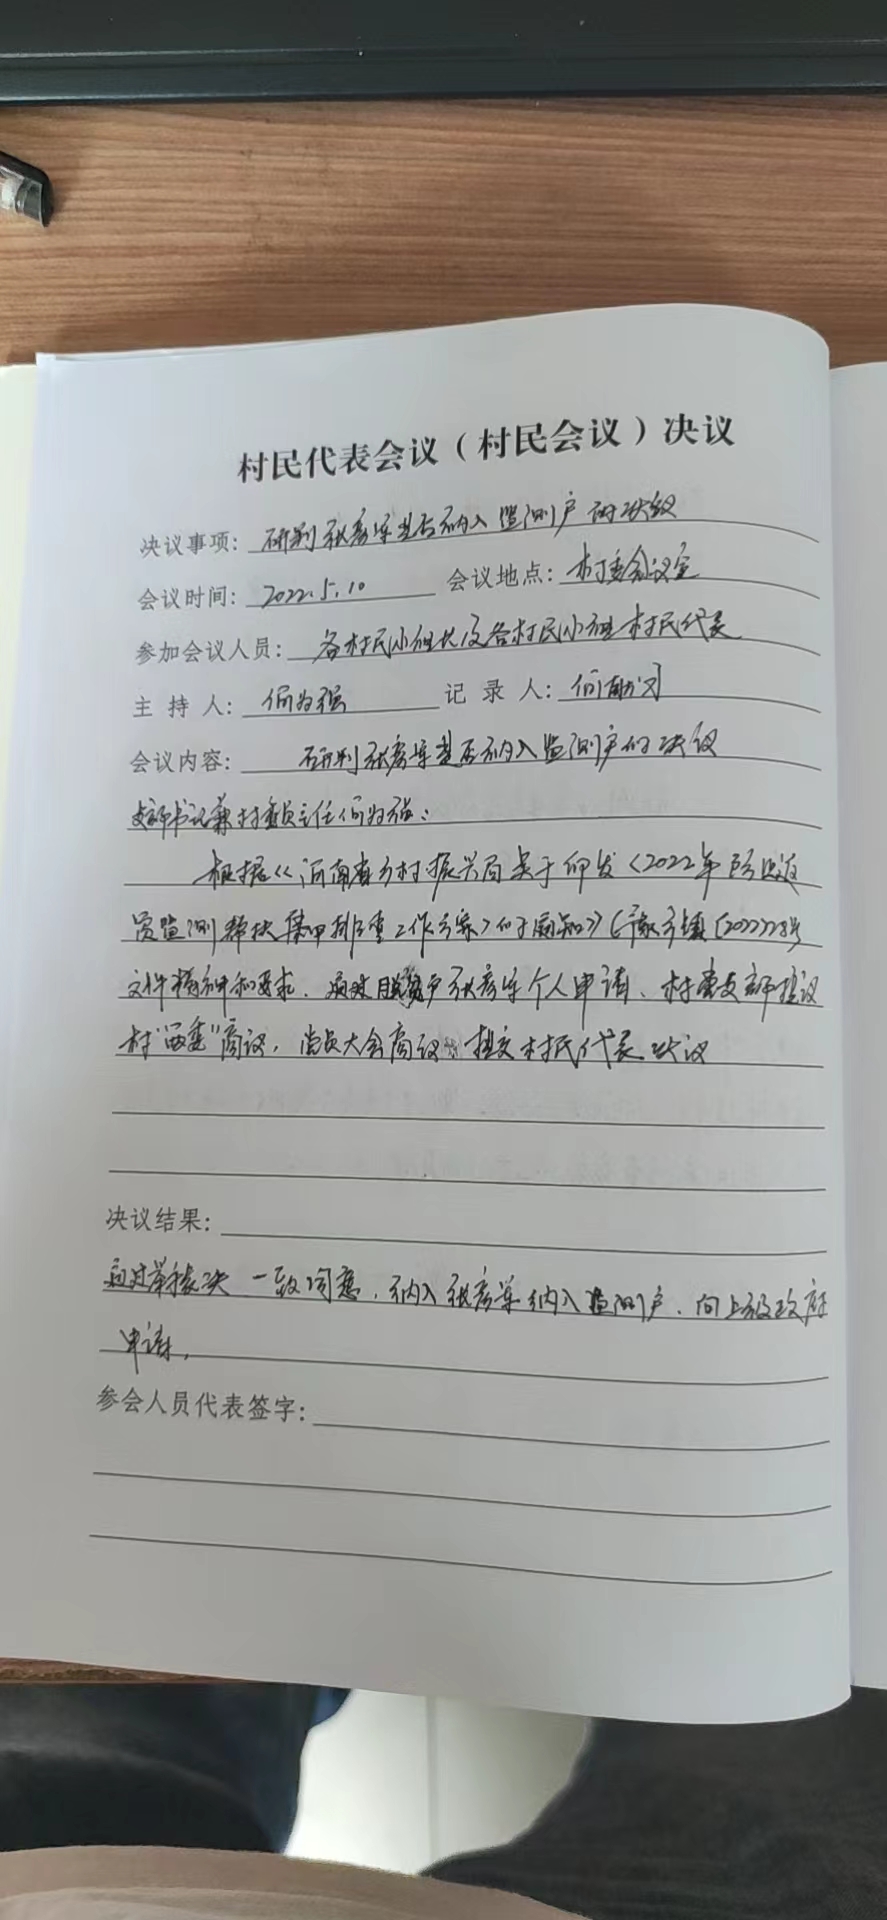 村民代表会议（村民会议）决议
决议事项：研判张彦军是否纳入监测户的决议
会议时间：2022.5.10 会议地点：村委会议室
参加会议人员：各村民小组长及各村民小组村民代表
主持人：何为强 记录人：何献习
会议内容：研判张彦军是否纳入监测户的决议
支部书记兼村委会主任何为强：
根据《河南省乡村振兴局关于印发〈2022年防返
贫监测帮扶集中排查工作方案〉的通知》（豫乡振〔2022〕28号
文件精神和要求，通过脱贫户张彦军个人申请、村党支部提议
村“两委”商议，党员大会商议 提交村民代表决议
决议结果：
通过举手表决 一致同意，纳入张彦军纳入监测户，向上级政府
申请，
参会人员代表签字：